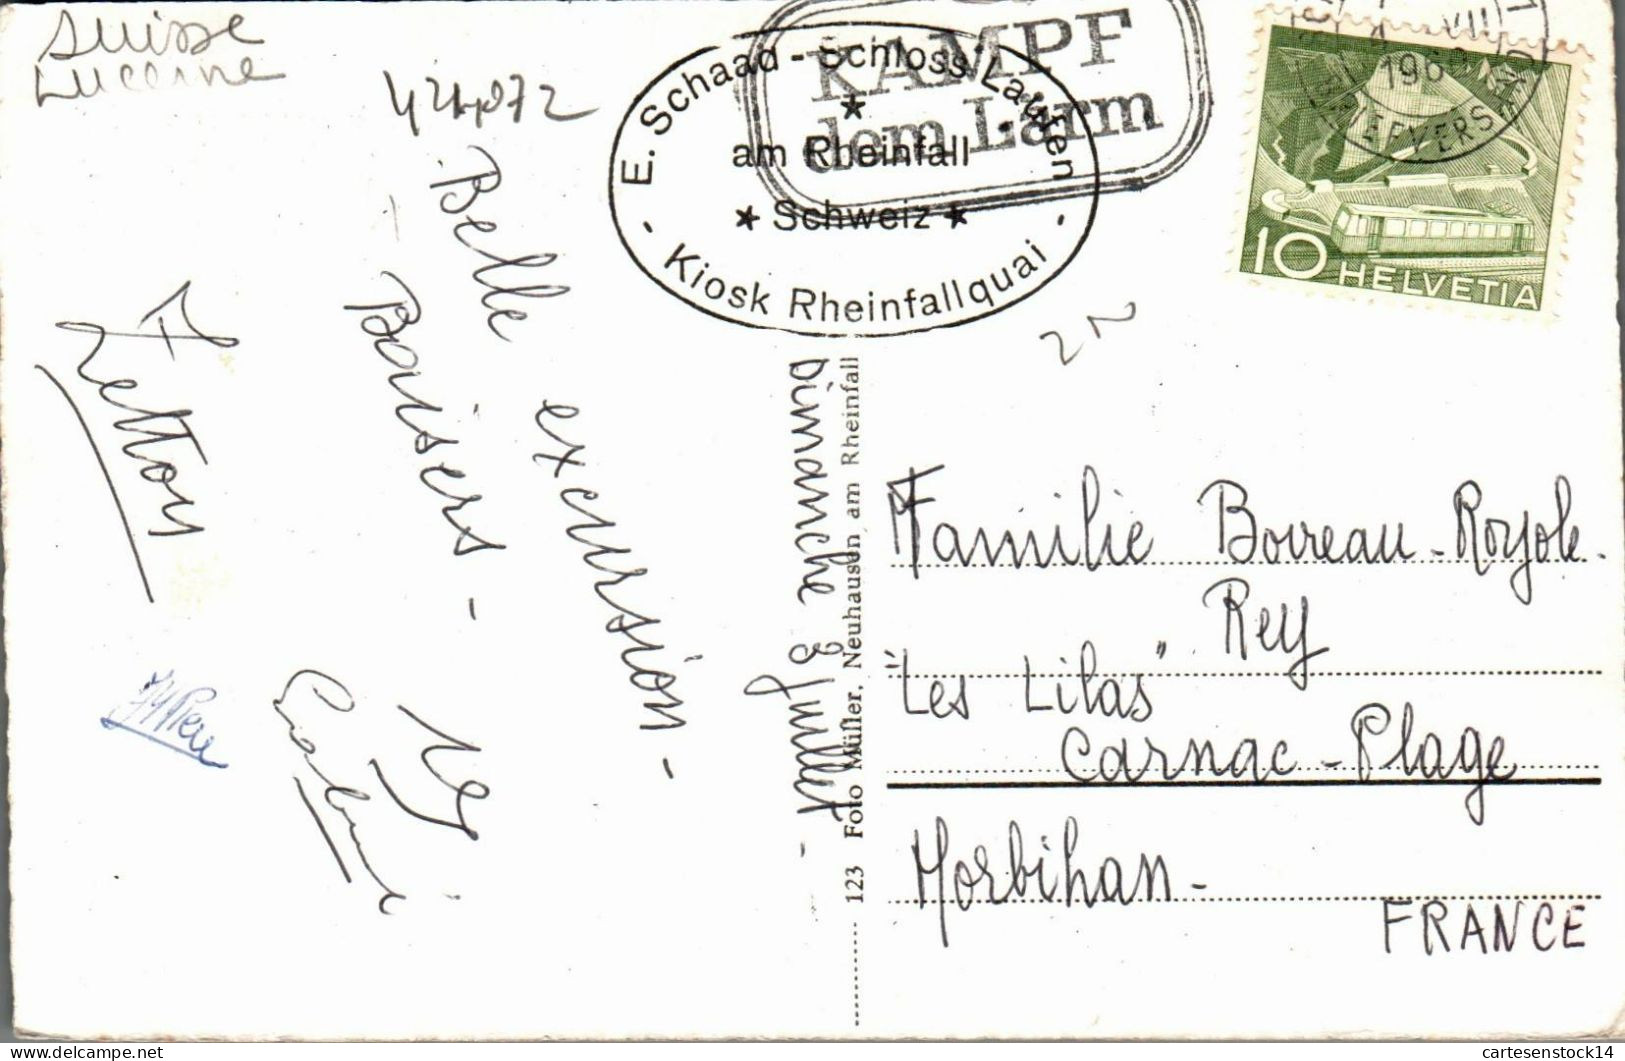 Suisse
Lucerne
424072
Belle excursion -
- Baisers -
Zetton
dimanche 3 juillet -
E. Schaad - Schloss Laufen
am Rheinfall
* Schweiz *
- Kiosk Rheinfallquai -
KAMPF
dem Lärm
10 HELVETIA
2N
123 Foto Müller, Neuhausen am Rheinfall
Famille Boireau - Royole -
Rey
"Les Lilas"
Carnac - Plage
Morbihan -
FRANCE
cartesenstock14
www.delcampe.net